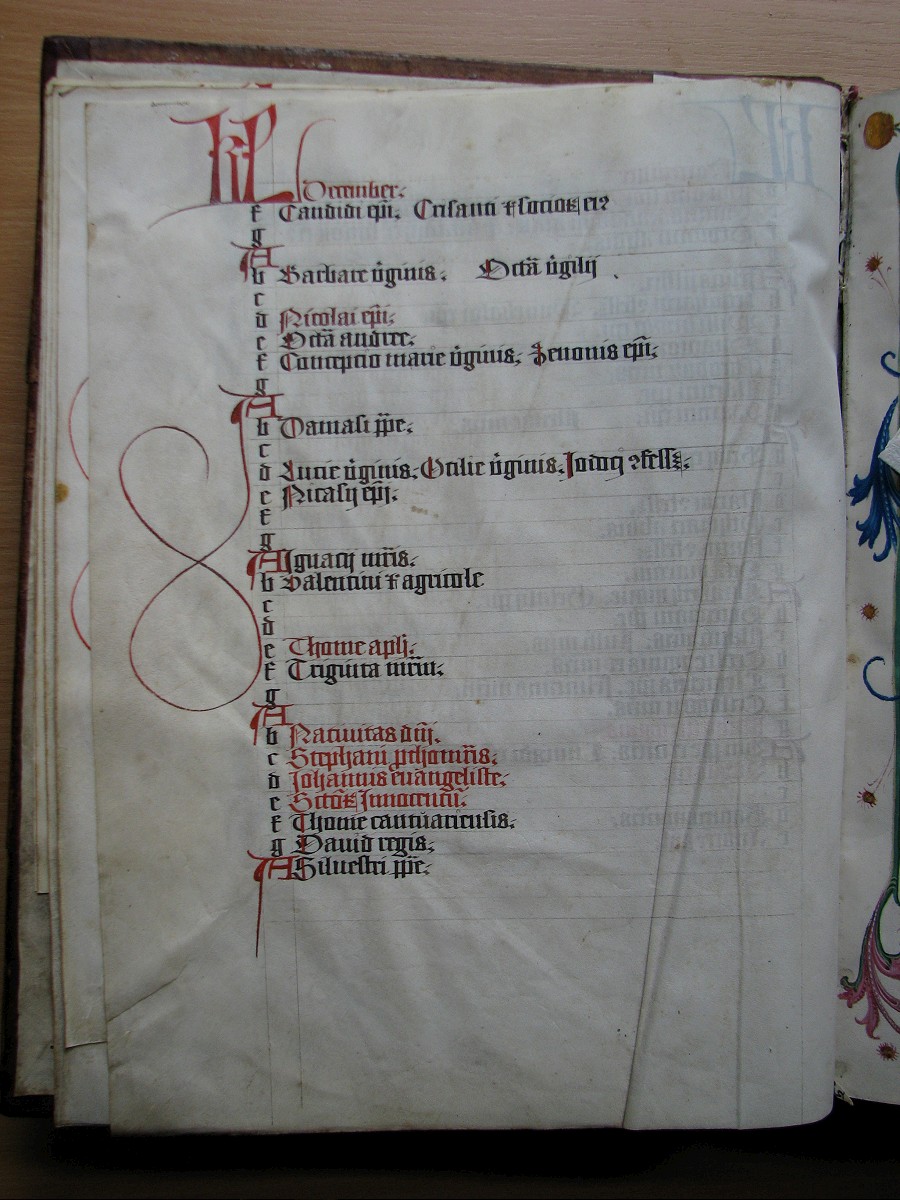 KL December.
f Candidi epi. Crisanti & socioꝝ ei⁹
g
A
b Barbare v̓ginis. Octā v̓gilij
c
d Nicolai epi.
e Octā andree.
f Conceptio marie v̓ginis. Zenonis epi.
g
A
b Damasi ꝑpe.
c
d Lucie v̓ginis. Otilie v̓ginis. Jodoci ꝯfess.
e Nicasij epi.
f
g
A Ignacij mr̄is.
b Valentini & agricole
c
d
e Thome apli.
f Triginta mr̄iū.
g
A
b Natiuitas dnī.
c Stephani mr̄is.
d Johannis euangeliste.
e Sctōꝝ Innocentū.
f Thome cantuariensis.
g Dauid regis.
A Siluestri ꝑpe.